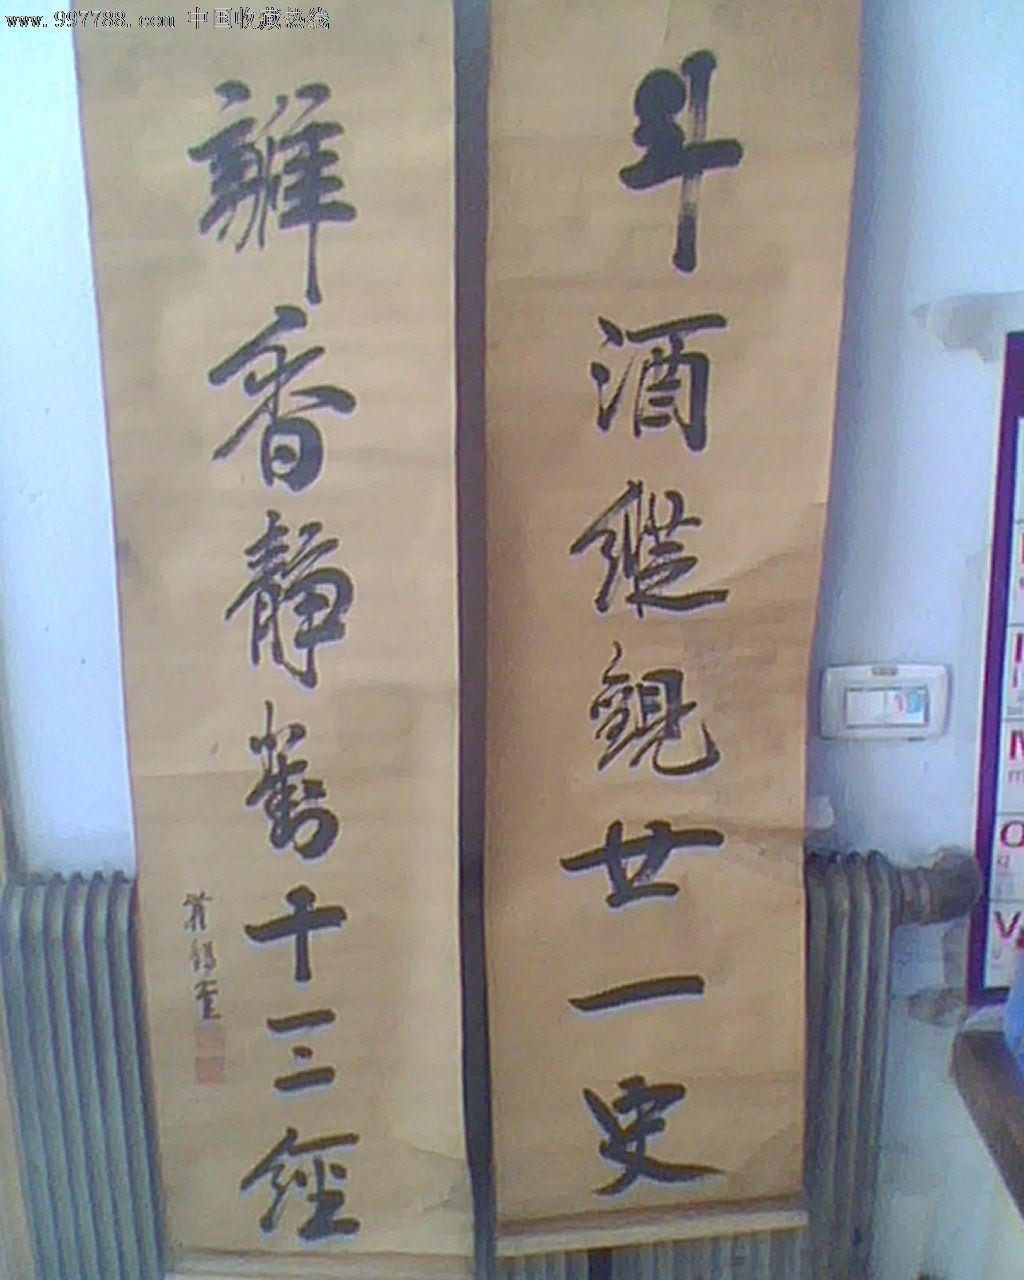 www.997788.com 中国收藏热线
斗酒縱觀廿一史
辦香靜對十三經